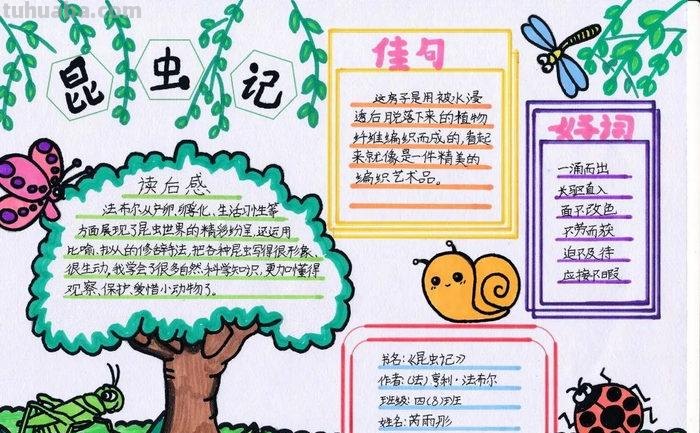 tuhuaba.com
昆虫记
读后感
法布尔从产卵、孵化、生活习性等
方面展现了昆虫世界的精彩纷呈,还运用
比喻、拟人的修辞手法,把各种昆虫写得很形象、
很生动,我学会了很多自然科学知识,更加懂得
观察、保护、爱惜小动物了。
佳句
这房子是用被水浸
透后脱落下来的植物
纤维编织而成的,看起
来就像是一件精美的
编织艺术品。
好词
一涌而出
长驱直入
面不改色
不劳而获
迫不及待
应接不暇
书名:《昆虫记》
作者:(法)亨利·法布尔
班级:四(8)班
姓名:芮雨彤